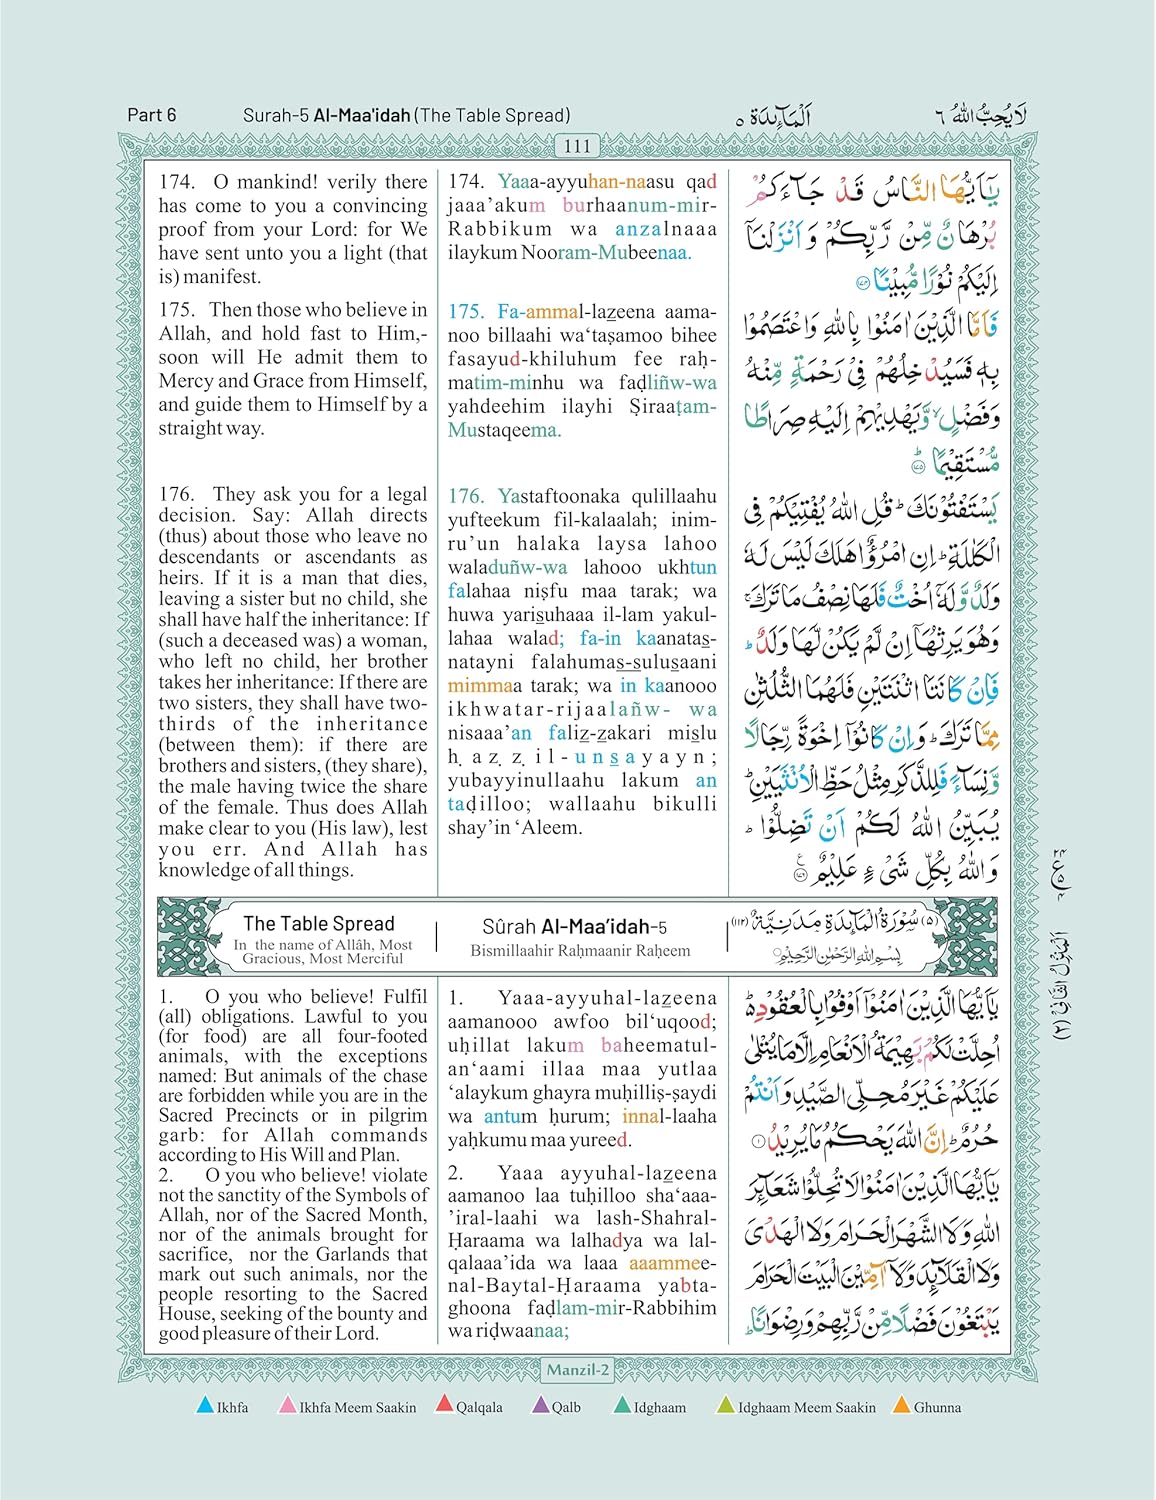 Part 6
Surah-5 Al-Maa'idah (The Table Spread)
اَلْمَآئِدَة ٥
لَا يُحِبُّ اللّٰهُ ٦
111
174. O mankind! verily there
has come to you a convincing
proof from your Lord: for We
have sent unto you a light (that
is) manifest.
175. Then those who believe in
Allah, and hold fast to Him,-
soon will He admit them to
Mercy and Grace from Himself,
and guide them to Himself by a
straight way.
176. They ask you for a legal
decision. Say: Allah directs
(thus) about those who leave no
descendants or ascendants as
heirs. If it is a man that dies,
leaving a sister but no child, she
shall have half the inheritance: If
(such a deceased was) a woman,
who left no child, her brother
takes her inheritance: If there are
two sisters, they shall have two-
thirds of the inheritance
(between them): if there are
brothers and sisters, (they share),
the male having twice the share
of the female. Thus does Allah
make clear to you (His law), lest
you err. And Allah has
knowledge of all things.
174. Yaaa-ayyuhan-naasu qad
jaaa’akum burhaanum-mir-
Rabbikum wa anzalnaaa
ilaykum Nooram-Mubeenaa.
175. Fa-ammal-lazeena aama-
noo billaahi wa‘taṣamoo bihee
fasayud-khiluhum fee raḥ-
matim-minhu wa faḍliñw-wa
yahdeehim ilayhi Ṣiraaṭam-
Mustaqeema.
176. Yastaftoonaka qulillaahu
yufteekum fil-kalaalah; inim-
ru’un halaka laysa lahoo
waladuñw-wa lahooo ukhtun
falahaa niṣfu maa tarak; wa
huwa yarisuhaaa il-lam yakul-
lahaa walad; fa-in kaanatas-
natayni falahumas-sulusaani
mimmaa tarak; wa in kaanooo
ikhwatar-rijaalañw- wa
nisaaa’an faliz-zakari mislu
ḥaẓẓil-unsayayn;
yubayyinullaahu lakum an
taḍilloo; wallaahu bikulli
shay’in ‘Aleem.
يٰٓاَيُّهَا النَّاسُ قَدْ جَآءَكُمْ
بُرْهَانٌ مِّنْ رَّبِّكُمْ وَ اَنْزَلْنَاۤ
اِلَيْكُمْ نُوْرًا مُّبِيْنًا ۝١٧٤
فَاَمَّا الَّذِيْنَ اٰمَنُوْا بِاللّٰهِ وَاعْتَصَمُوْا
بِهٖ فَسَيُدْخِلُهُمْ فِيْ رَحْمَةٍ مِّنْهُ
وَفَضْلٍ ۙ وَّيَهْدِيْهِمْ اِلَيْهِ صِرَاطًا
مُّسْتَقِيْمًا ۝١٧٥ؕ
يَسْتَفْتُوْنَكَ ؕ قُلِ اللّٰهُ يُفْتِيْكُمْ فِى
الْكَلٰلَةِ ؕ اِنِ امْرُؤٌا هَلَكَ لَيْسَ لَهٗ
وَلَدٌ وَّ لَهٗۤ اُخْتٌ فَلَهَا نِصْفُ مَا تَرَكَ ۚ
وَهُوَ يَرِثُهَاۤ اِنْ لَّمْ يَكُنْ لَّهَا وَلَدٌ ؕ
فَاِنْ كَانَتَا اثْنَتَيْنِ فَلَهُمَا الثُّلُثٰنِ
مِمَّا تَرَكَ ؕ وَاِنْ كَانُوْۤا اِخْوَةً رِّجَالًا
وَّنِسَآءً فَلِلذَّكَرِ مِثْلُ حَظِّ الْاُنْثَيَيْنِ ؕ
يُبَيِّنُ اللّٰهُ لَكُمْ اَنْ تَضِلُّوْا ؕ
وَ اللّٰهُ بِكُلِّ شَیْءٍ عَلِيْمٌ ۝١٧٦
The Table Spread
In the name of Allâh, Most
Gracious, Most Merciful
Sûrah Al-Maa’idah-5
Bismillaahir Raḥmaanir Raḥeem
(٥) سُوْرَةُ الْمَآئِدَةِ مَدَنِيَّةٌ (١١٢)
بِسْمِ اللّٰهِ الرَّحْمٰنِ الرَّحِيْمِ
1. O you who believe! Fulfil
(all) obligations. Lawful to you
(for food) are all four-footed
animals, with the exceptions
named: But animals of the chase
are forbidden while you are in the
Sacred Precincts or in pilgrim
garb: for Allah commands
according to His Will and Plan.
2. O you who believe! violate
not the sanctity of the Symbols of
Allah, nor of the Sacred Month,
nor of the animals brought for
sacrifice, nor the Garlands that
mark out such animals, nor the
people resorting to the Sacred
House, seeking of the bounty and
good pleasure of their Lord.
1. Yaaa-ayyuhal-lazeena
aamanooo awfoo bil‘uqood;
uḥillat lakum baheematul-
an‘aami illaa maa yutlaa
‘alaykum ghayra muḥilliṣ-ṣaydi
wa antum ḥurum; innal-laaha
yaḥkumu maa yureed.
2. Yaaa ayyuhal-lazeena
aamanoo laa tuḥilloo sha‘aaa-
’iral-laahi wa lash-Shahral-
Ḥaraama wa lalhadya wa lal-
qalaaa’ida wa laaa aaammee-
nal-Baytal-Ḥaraama yabta-
ghoona faḍlam-mir-Rabbihim
wa riḍwaanaa;
يٰۤاَيُّهَا الَّذِيْنَ اٰمَنُوْۤا اَوْفُوْا بِالْعُقُوْدِ ؕ
اُحِلَّتْ لَكُمْ بَهِيْمَةُ الْاَنْعَامِ اِلَّا مَا يُتْلٰى
عَلَيْكُمْ غَيْرَ مُحِلِّى الصَّيْدِ وَ اَنْتُمْ
حُرُمٌ ؕ اِنَّ اللّٰهَ يَحْكُمُ مَا يُرِيْدُ ۝١
يٰۤاَيُّهَا الَّذِيْنَ اٰمَنُوْا لَا تُحِلُّوْا شَعَآئِرَ
اللّٰهِ وَلَا الشَّهْرَ الْحَرَامَ وَلَا الْهَدْىَ
وَلَا الْقَلَآئِدَ وَلَاۤ آمِّيْنَ الْبَيْتَ الْحَرَامَ
يَبْتَغُوْنَ فَضْلًا مِّنْ رَّبِّهِمْ وَرِضْوَانًا ؕ
اَلْمَنْزِلُ الثَّانِیْ (٢)
Manzil-2
Ikhfa
Ikhfa Meem Saakin
Qalqala
Qalb
Idghaam
Idghaam Meem Saakin
Ghunna